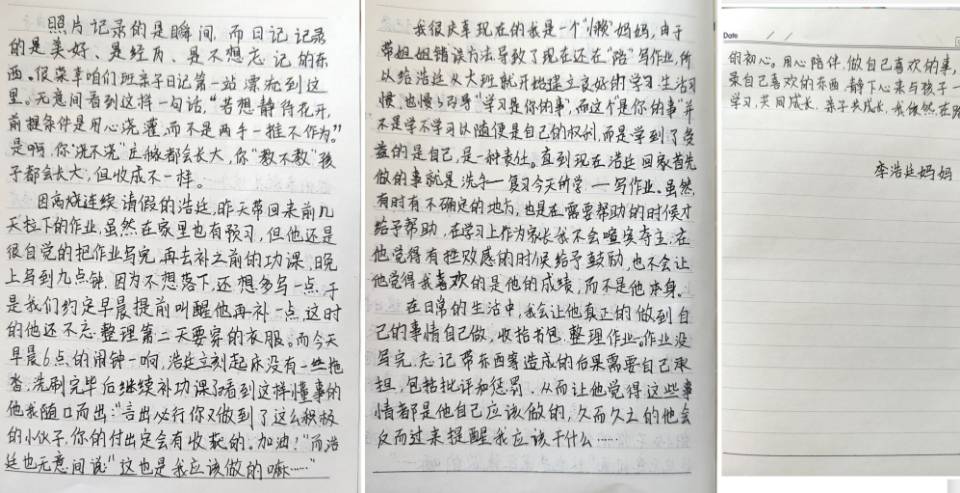 照片记录的是瞬间，而日记记录
的是美好、是经历、是不想忘记的东
西。很荣幸咱们班亲子日记第一站漂流到这
里。无意间看到这样一句话，“若想静待花开，
前提条件是用心浇灌，而不是两手一推不作为”。
是啊，你“浇不浇”庄稼都会长大，你“教不教”孩
子都会长大，但收成不一样。
因高烧连续请假的浩廷，昨天带回来前几
天拉下的作业，虽然在家里也有预习，但他还是
很自觉的把作业写完，再去补之前的功课，晚
上写到九点钟，因为不想落下，还想多写一点，于
是我们约定早晨提前叫醒他再补一点，这时
的他还不忘整理第二天要穿的衣服。而今天
早晨6点的闹钟一响，浩廷立刻起床没有一丝拖
沓，洗刷完毕后继续补功课了，看到这样懂事的
他我随口而出：“言出必行你又做到了这么积极
的小伙子，你的付出定会有收获的。加油！”而浩
廷也无意间说：“这也是我应该做的嘛……”
我很庆幸现在的我是一个“懒”妈妈，由于
带姐姐错误方法，导致了现在还在“陪”写作业，所
以给浩廷从大班就开始建立良好的学习、生活习
惯，也慢慢引导“学习是你的事”，而这个“是你的事”并
不是学不学习以随便是自己的权利，而是学到了受
益的是自己，是一种责任。直到现在浩廷回家首先
做的事就是洗手—复习今天所学—写作业。虽然
有时有不确定的地方，也是在需要帮助的时候才
给予帮助，在学习上作为家长我不会喧宾夺主，在
他觉得有挫败感的时候给予鼓励，也不会让
他觉得我喜欢的是他的成绩，而不是他本身。
在日常的生活中，我会让他真正的做到自
己的事情自己做，收拾书包、整理作业。作业没
写完、忘记带东西等造成的后果需要自己承
担，包括批评和惩罚。从而让他觉得这些事
情都是他自己应该做的，久而久之的他会
反而过来提醒我应该干什么……
Date
的初心。用心陪伴，做自己喜欢的事，
买自己喜欢的东西，静下心来与孩子一
学习，共同成长。亲子共成长，我依然在路
李浩廷妈妈